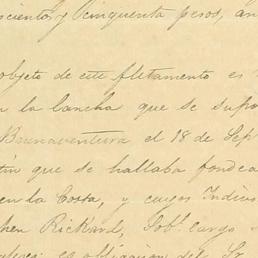 scientos y cincuenta pesos, an
objeto de este fletamento es
en la lancha que se supo
Buenaventura el 18 de Sep
que se hallaba fondea
en la Costa, y cuyos Indivi
hen Rickard, Sob. cargo
es obligacion del Sr